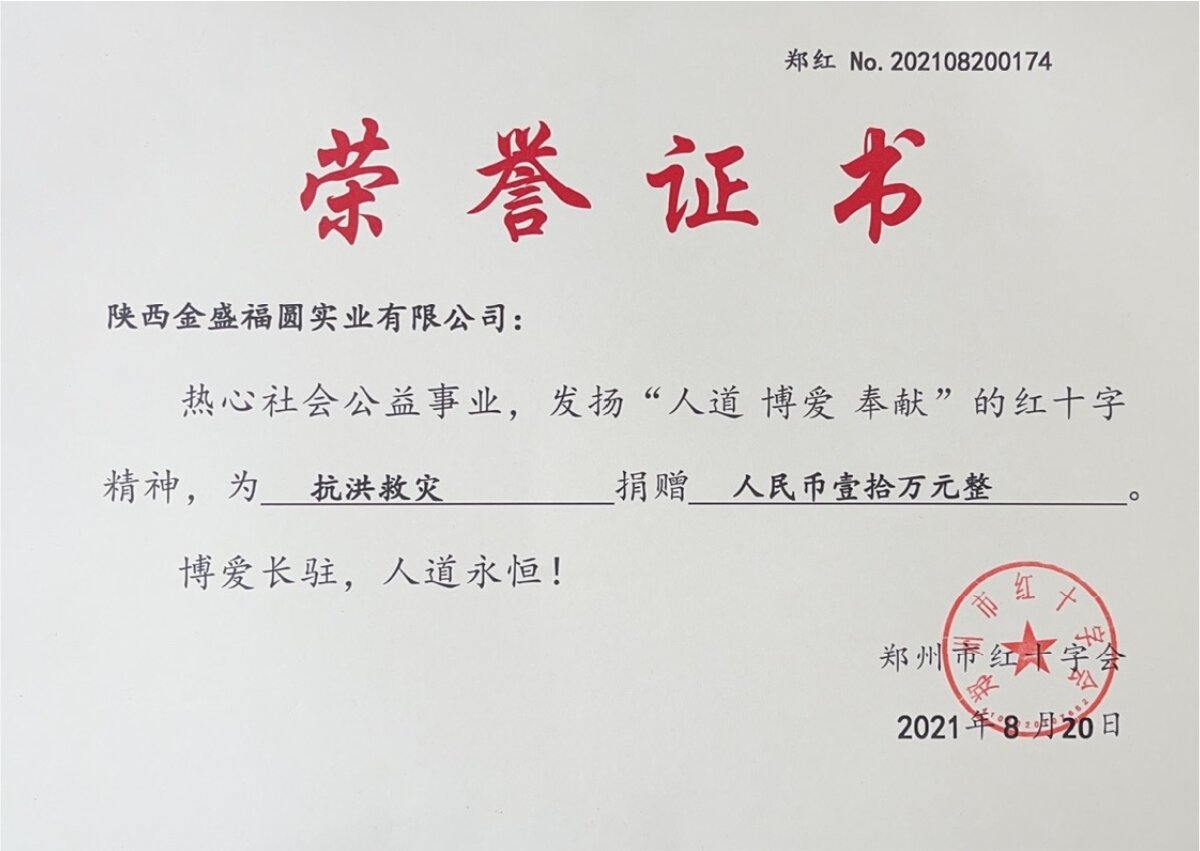 郑红 No. 202108200174
荣誉证书
陕西金盛福圆实业有限公司：
热心社会公益事业，发扬“人道 博爱 奉献”的红十字
精神，为 抗洪救灾 捐赠 人民币壹拾万元整 。
博爱长驻，人道永恒！
郑州市红十字会
郑州市红十字会
2021年 8 月20日